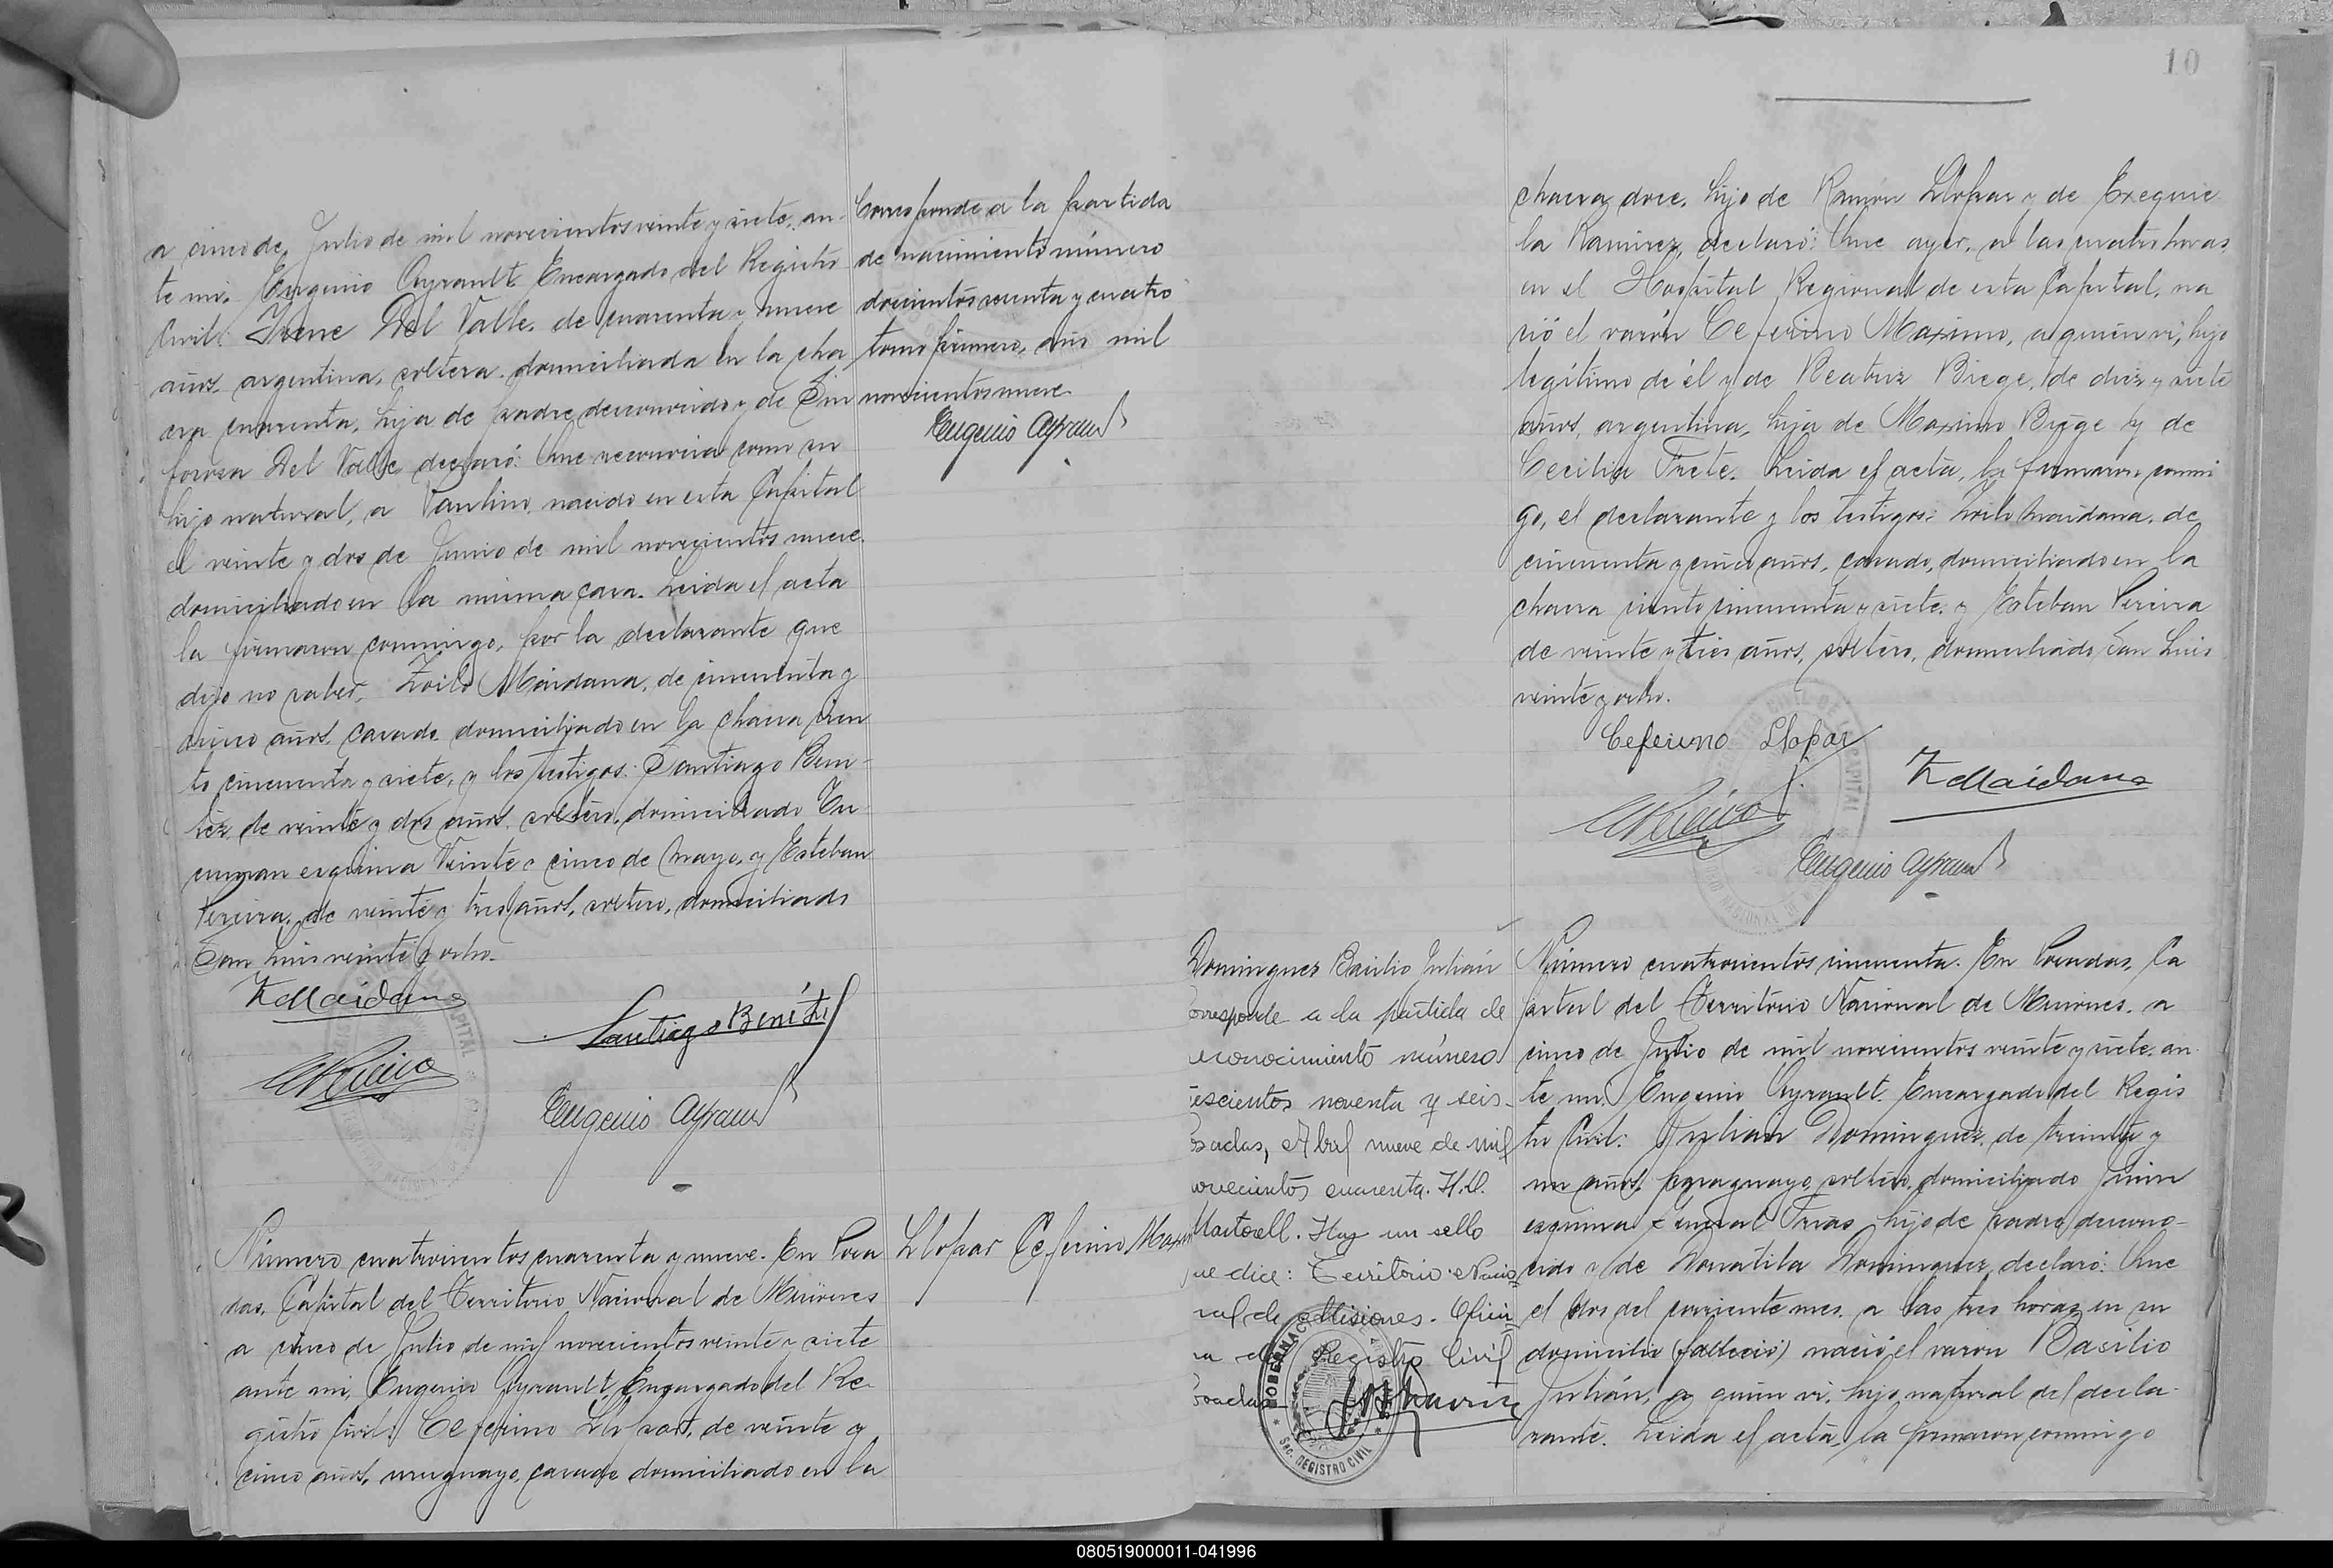 a cinco de Julio de mil novecientos veinte y siete, an-
te mi, Eugenio Ayrault Encargado del Registro
Civil: Irene Del Valle, de cuarenta y nueve
años, argentina, soltera, domiciliada en la cha
cra cuarenta, hija de padre desconocido y de Sin
forosa Del Valle declaró: Que reconocia como su
hijo natural, a Paulino, nacido en esta Capital
el veinte y dos de Junio de mil novecientos nueve.
domiciliado en la misma casa. Leida el acta
la firmaron conmigo, por la declarante que
dijo no saber, Zoilo Maidana, de cincuenta y
cinco años, casado domiciliado en la chacra cien
to cincuenta y siete, y los testigos: Santiago Beni-
tez, de veinte y dos años, soltero, domiciliado Tu-
cuman esquina Veinte y cinco de Mayo, y Esteban
Pereira, de veinte y tres años, soltero, domiciliado
San Luis veinte y ocho.
Z Maidana
Santiago Benítez
Eugenio Ayrault
Corresponde a la partida
de nacimiento número
doscientos y cuatro
tomo primero, año mil
novecientos nueve
Eugenio Ayrault
Número cuatrocientos cuarenta y nueve. En Posa
das, Capital del Territorio Nacional de Misiones
a cinco de Julio de mil novecientos veinte y siete
ante mi, Eugenio Ayrault, Encargado del Re-
gistro Civil: Ceferino Llopart, de veinte y
cinco años, uruguayo, casado domiciliado en la
Llopar Ceferino Maxi
10
chacra doce, hijo de Ramón Llopar y de Exequie
la Ramirez, declaró: Que ayer, a las cuatro horas
en el Hospital Regional de esta Capital, na
ció el varón Ceferino Maximo, a quien vi, hijo
legítimo de él y de Beatriz Biege, de diez y siete
años, argentina, hija de Maximo Biege y de
Cecilia Frete. Leida el acta, la firmaron conmi
go, el declarante y los testigos: Zoilo Maidana, de
cincuenta y cinco años, casado, domiciliado en la
chacra ciento cincuenta y siete, y Esteban Pereira
de veinte y tres años, soltero, domiciliado San Luis
veinte y ocho.
Ceferino Llopar
Z Maidana
Eugenio Ayrault
Dominguez Basilio Julián
orresponde a la partida de
econocimiento número
escientos noventa y seis
osadas, Abril nueve de mil
ovecientos cuarenta. H.D.
Martorell. Hay un sello
que dice: Territorio Nacio
nal de Misiones. Ofici
na del Registro Civil
Posadas
GOBERNAC
SEC. REGISTRO CIVIL
Número cuatrocientos cincuenta. En Posadas, Ca
pital del Territorio Nacional de Misiones, a
cinco de Julio de mil novecientos veinte y siete, an-
te mi, Eugenio Ayrault, Encargado del Regis
tro Civil: Julian Dominguez, de treinta y
un años, paraguayo, soltero, domiciliado Junin
esquina General Frias, hijo de padre descono-
cido y de Donatila Dominguez, declaró: Que
el dos del corriente mes, a las tres horas en su
domicilio (falleció) nació el varon Basilio
Julián, a quien vi, hijo natural del decla-
rante. Leida el acta, la firmaron conmigo
080519000011-041996